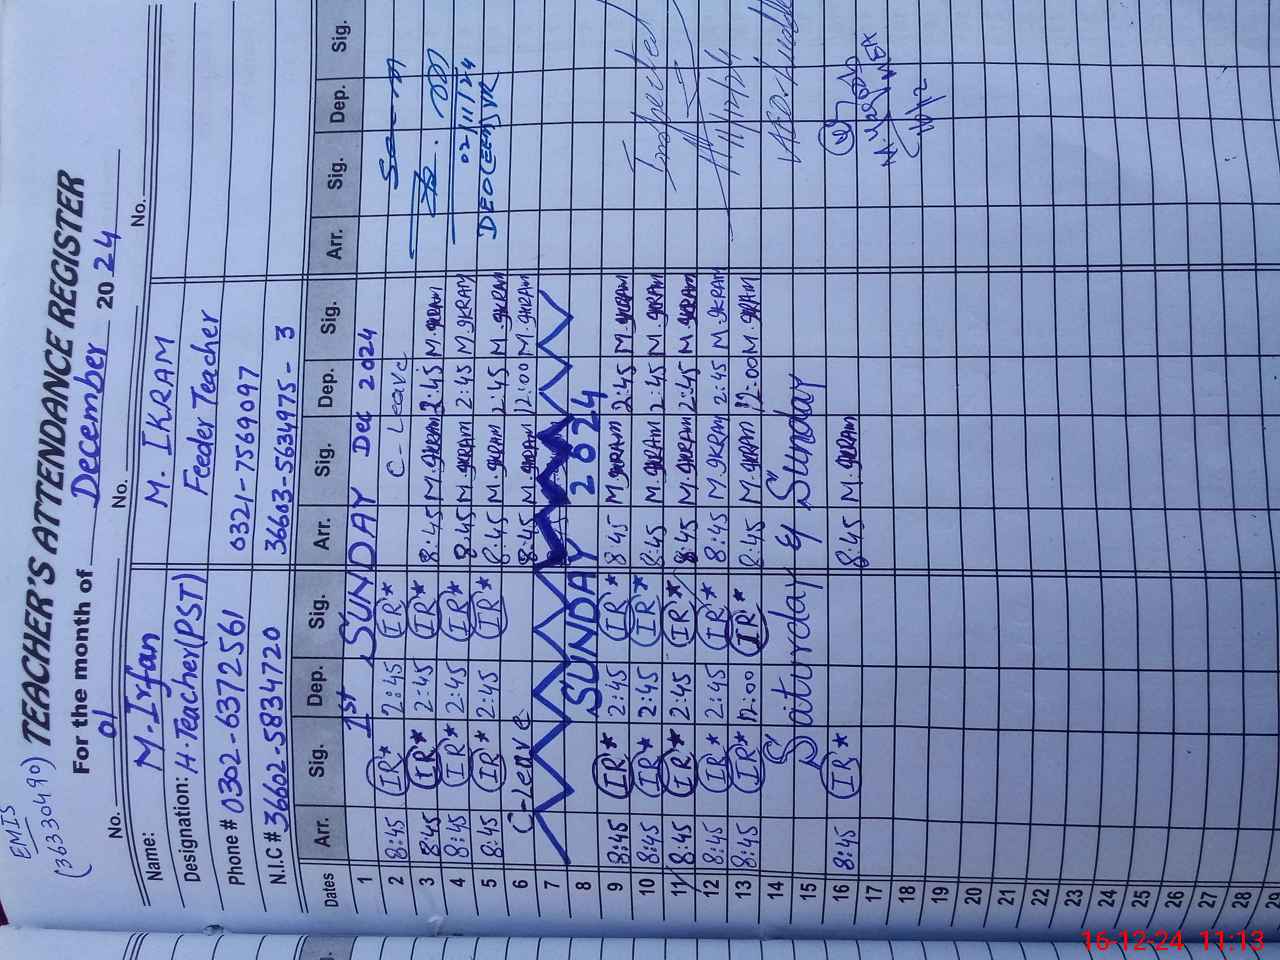 EMIS
(36330490)
TEACHER'S ATTENDANCE REGISTER
For the month of December 2024
No. 01 No. No.
Name: M. Irfan M. IKRAM
Designation: H. Teacher (PST) Feeder Teacher
Phone # 0302-6372561 0321-7569097
N.I.C # 36602-5834720 36603-5634975-3
Dates Arr. Sig. Dep. Sig. Arr. Sig. Dep. Sig. Arr. Sig. Dep. Sig.
1 1st SUNDAY Dec 2024
2 8:45 IR* 2:45 IR* C-Leave
3 8:45 IR* 2:45 IR* 8:45 M.IKRAM 2:45 M.IKRAM
4 8:45 IR* 2:45 IR* 8:45 M.IKRAM 2:45 M.IKRAM 02/11/24
5 8:45 IR* 2:45 IR* 8:45 M.IKRAM 2:45 M.IKRAM
6 C-Leave 8:45 M.IKRAM 12:00 M.IKRAM
7
8 SUNDAY 2024
9 8:45 IR* 2:45 IR* 8:45 M.IKRAM 2:45 M.IKRAM
10 8:45 IR* 2:45 IR* 8:45 M.IKRAM 2:45 M.IKRAM Inspected
11 8:45 IR* 2:45 IR* 8:45 M.IKRAM 2:45 M.IKRAM
12 8:45 IR* 2:45 IR* 8:45 M.IKRAM 2:45 M.IKRAM 11/12/24
13 8:45 IR* 12:00 IR* 8:45 M.IKRAM 12:00 M.IKRAM
14 Saturday & Sunday
15
16 8:45 IR* 8:45 M.IKRAM
17 MEA
18 16/12
19
20
21
22
23
24
25
26
27
28
29
16-12-24 11:13